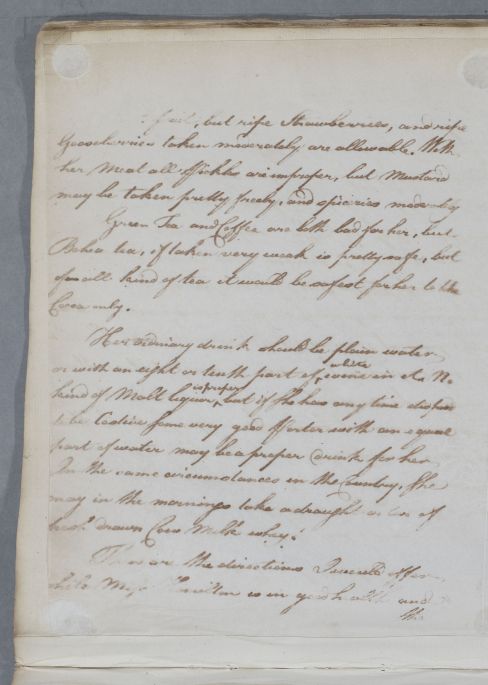 but ripe Strawberries, and ripe
Gooseberries taken moderately are allowable. With
her Meat all Pickles are improper, but Mustard
may be taken pretty freely, and spiceries moderately
Green Tea and Coffee are both bad for her, but
Bohea tea, if taken very weak is pretty safe, but
of all kind of tea it would be safest for her to take
Cocoa only.
Her ordinary drink should be plain water
or with an eight or tenth part of white wine in it. No
kind of Malt liquor is proper, but if she has any time
to be Costive some very good Porter with an equal
part of water may be a proper drink for her
In the same circumstances in the Country, She
may in the mornings take a draught of
fresh drawn Cow Milk whey.
These are the directions I would offer
Miss Hamilton is in good health and
She